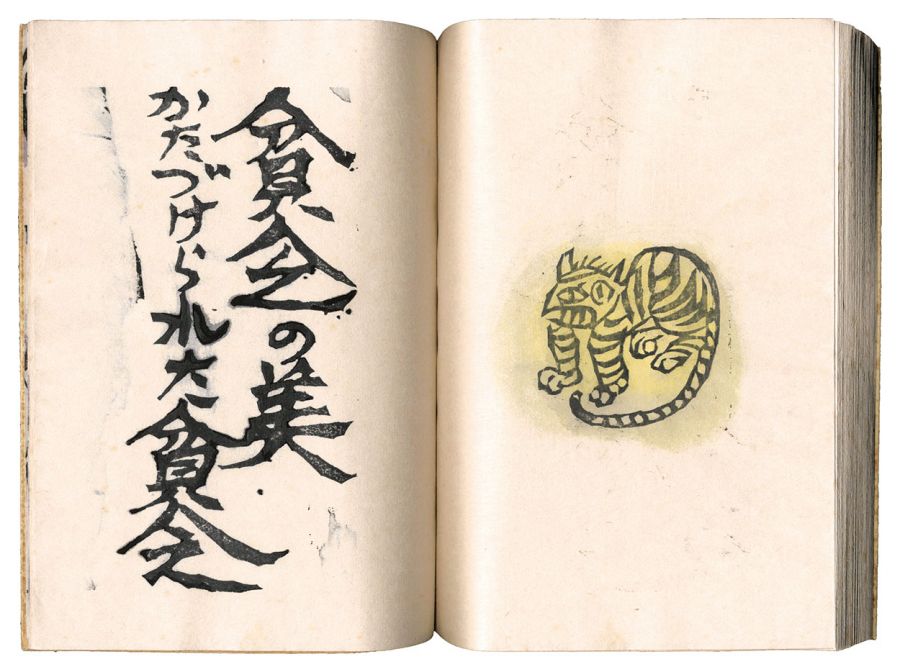 貧乏の美
かたづけられた貧乏